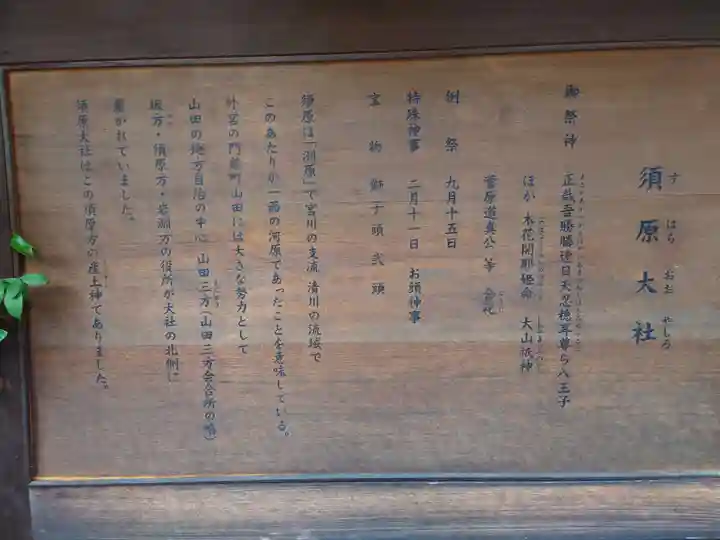 須原大社
すはらおおやしろ
御祭神　正哉吾勝勝速日天忍穂耳尊ら八王子
ほか　木花開耶姫命　大山祇神
菅原道真公　等　合祀
例祭　九月十五日
特殊神事　二月十一日　お頭神事
宝物　獅子頭　弐頭
須原は「洲原」で宮川の支流　清川の流域で
このあたりが一面の河原であったことを意味している。
外宮の門前町山田には大きな努力として
山田の地方自治の中心　山田三方(山田三方会合所の略)
坂方・須原方・岩淵方の役所が大社の北側に
置かれていました。
須原大社はこの須原方の産土神でありました。